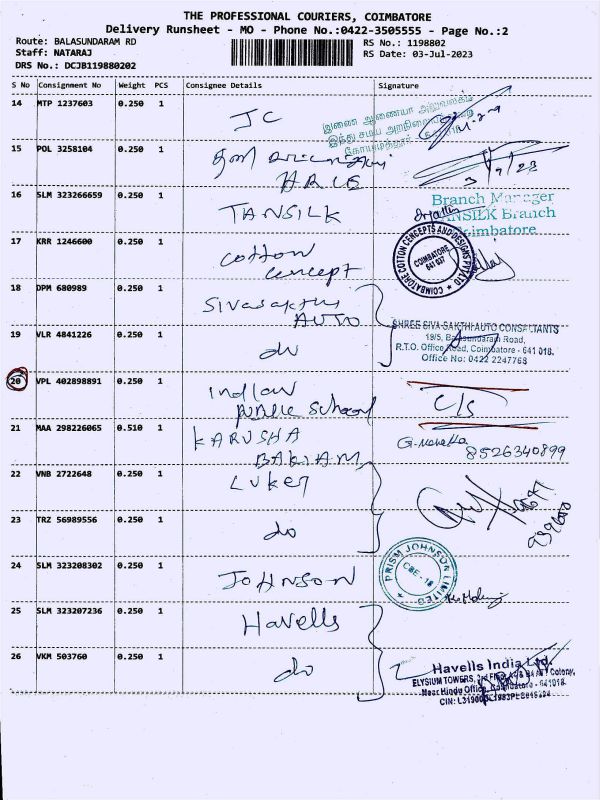 THE PROFESSIONAL COURIERS, COIMBATORE
Delivery Runsheet - MO - Phone No.:0422-3505555 - Page No.:2
Route: BALASUNDARAM RD
RS No.: 1198802
Staff: NATARAJ
RS Date: 03-Jul-2023
DRS No.: DCJB119880202
S No Consignment No Weight PCS Consignee Details Signature
14 MTP 1237603 0.250 1 JC
இணை ஆணையர் அலுவலகம்
இந்து சமய அறநிலைய
கோயம்புத்தூர்
15 POL 3258104 0.250 1
16 SLM 323266659 0.250 1 TANSILK
Branch Manager
TANSILK Branch
Coimbatore
17 KRR 1246600 0.250 1 Cotton
Concept
COIMBATORE COTTON CONCEPTS AND DESIGNS PVT LTD
COIMBATORE
641 037
18 DPM 680989 0.250 1 Sivasakthi
AUTO
SHREE SIVA SAKTHI AUTO CONSULTANTS
19/5, Balasundaram Road,
R.T.O. Office Road, Coimbatore - 641 018.
Office No: 0422 2247768
19 VLR 4841226 0.250 1 do
20 VPL 402898891 0.250 1 Indian
Public School C/S
21 MAA 298226065 0.510 1 KARUSHA
8526340899
22 VNB 2722648 0.250 1 Luker
23 TRZ 56989556 0.250 1 do
24 SLM 323208302 0.250 1 JOHNSON
PRISM JOHNSON LIMITED
CBE - 18
25 SLM 323207236 0.250 1 Havells
26 VKM 503760 0.250 1 do
Havells India Ltd.
ELYSIUM TOWERS, 3rd Floor, Colony,
Near Hindu Office, Coimbatore - 641018.